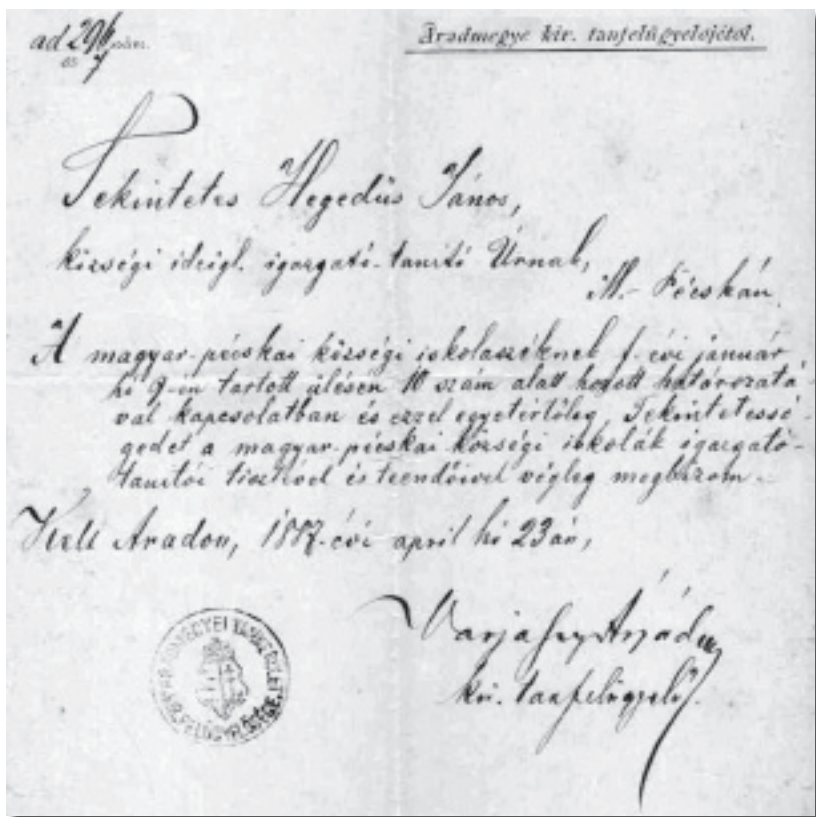 ad 296 szám.
87
Aradmegye kir. tanfelügyelőjétől.
Tekintetes Hegedűs János,
községi ideigl. igazgató-tanító Úrnak,
M.-Pécskán.
A magyar-pécskai községi iskolaszéknek f. évi január
hó 9-én tartott ülésen 10 szám alatt hozott határozatá-
val kapcsolatban és ezzel egyetértőleg, Tekintetessé-
gedet a magyar-pécskai községi iskolák igazgató-
tanítói tisztével és teendőivel végleg megbízom.-
Kelt Aradon, 1887. évi april hó 23án,
Varjassy Árpád
kir. tanfelügyelő.